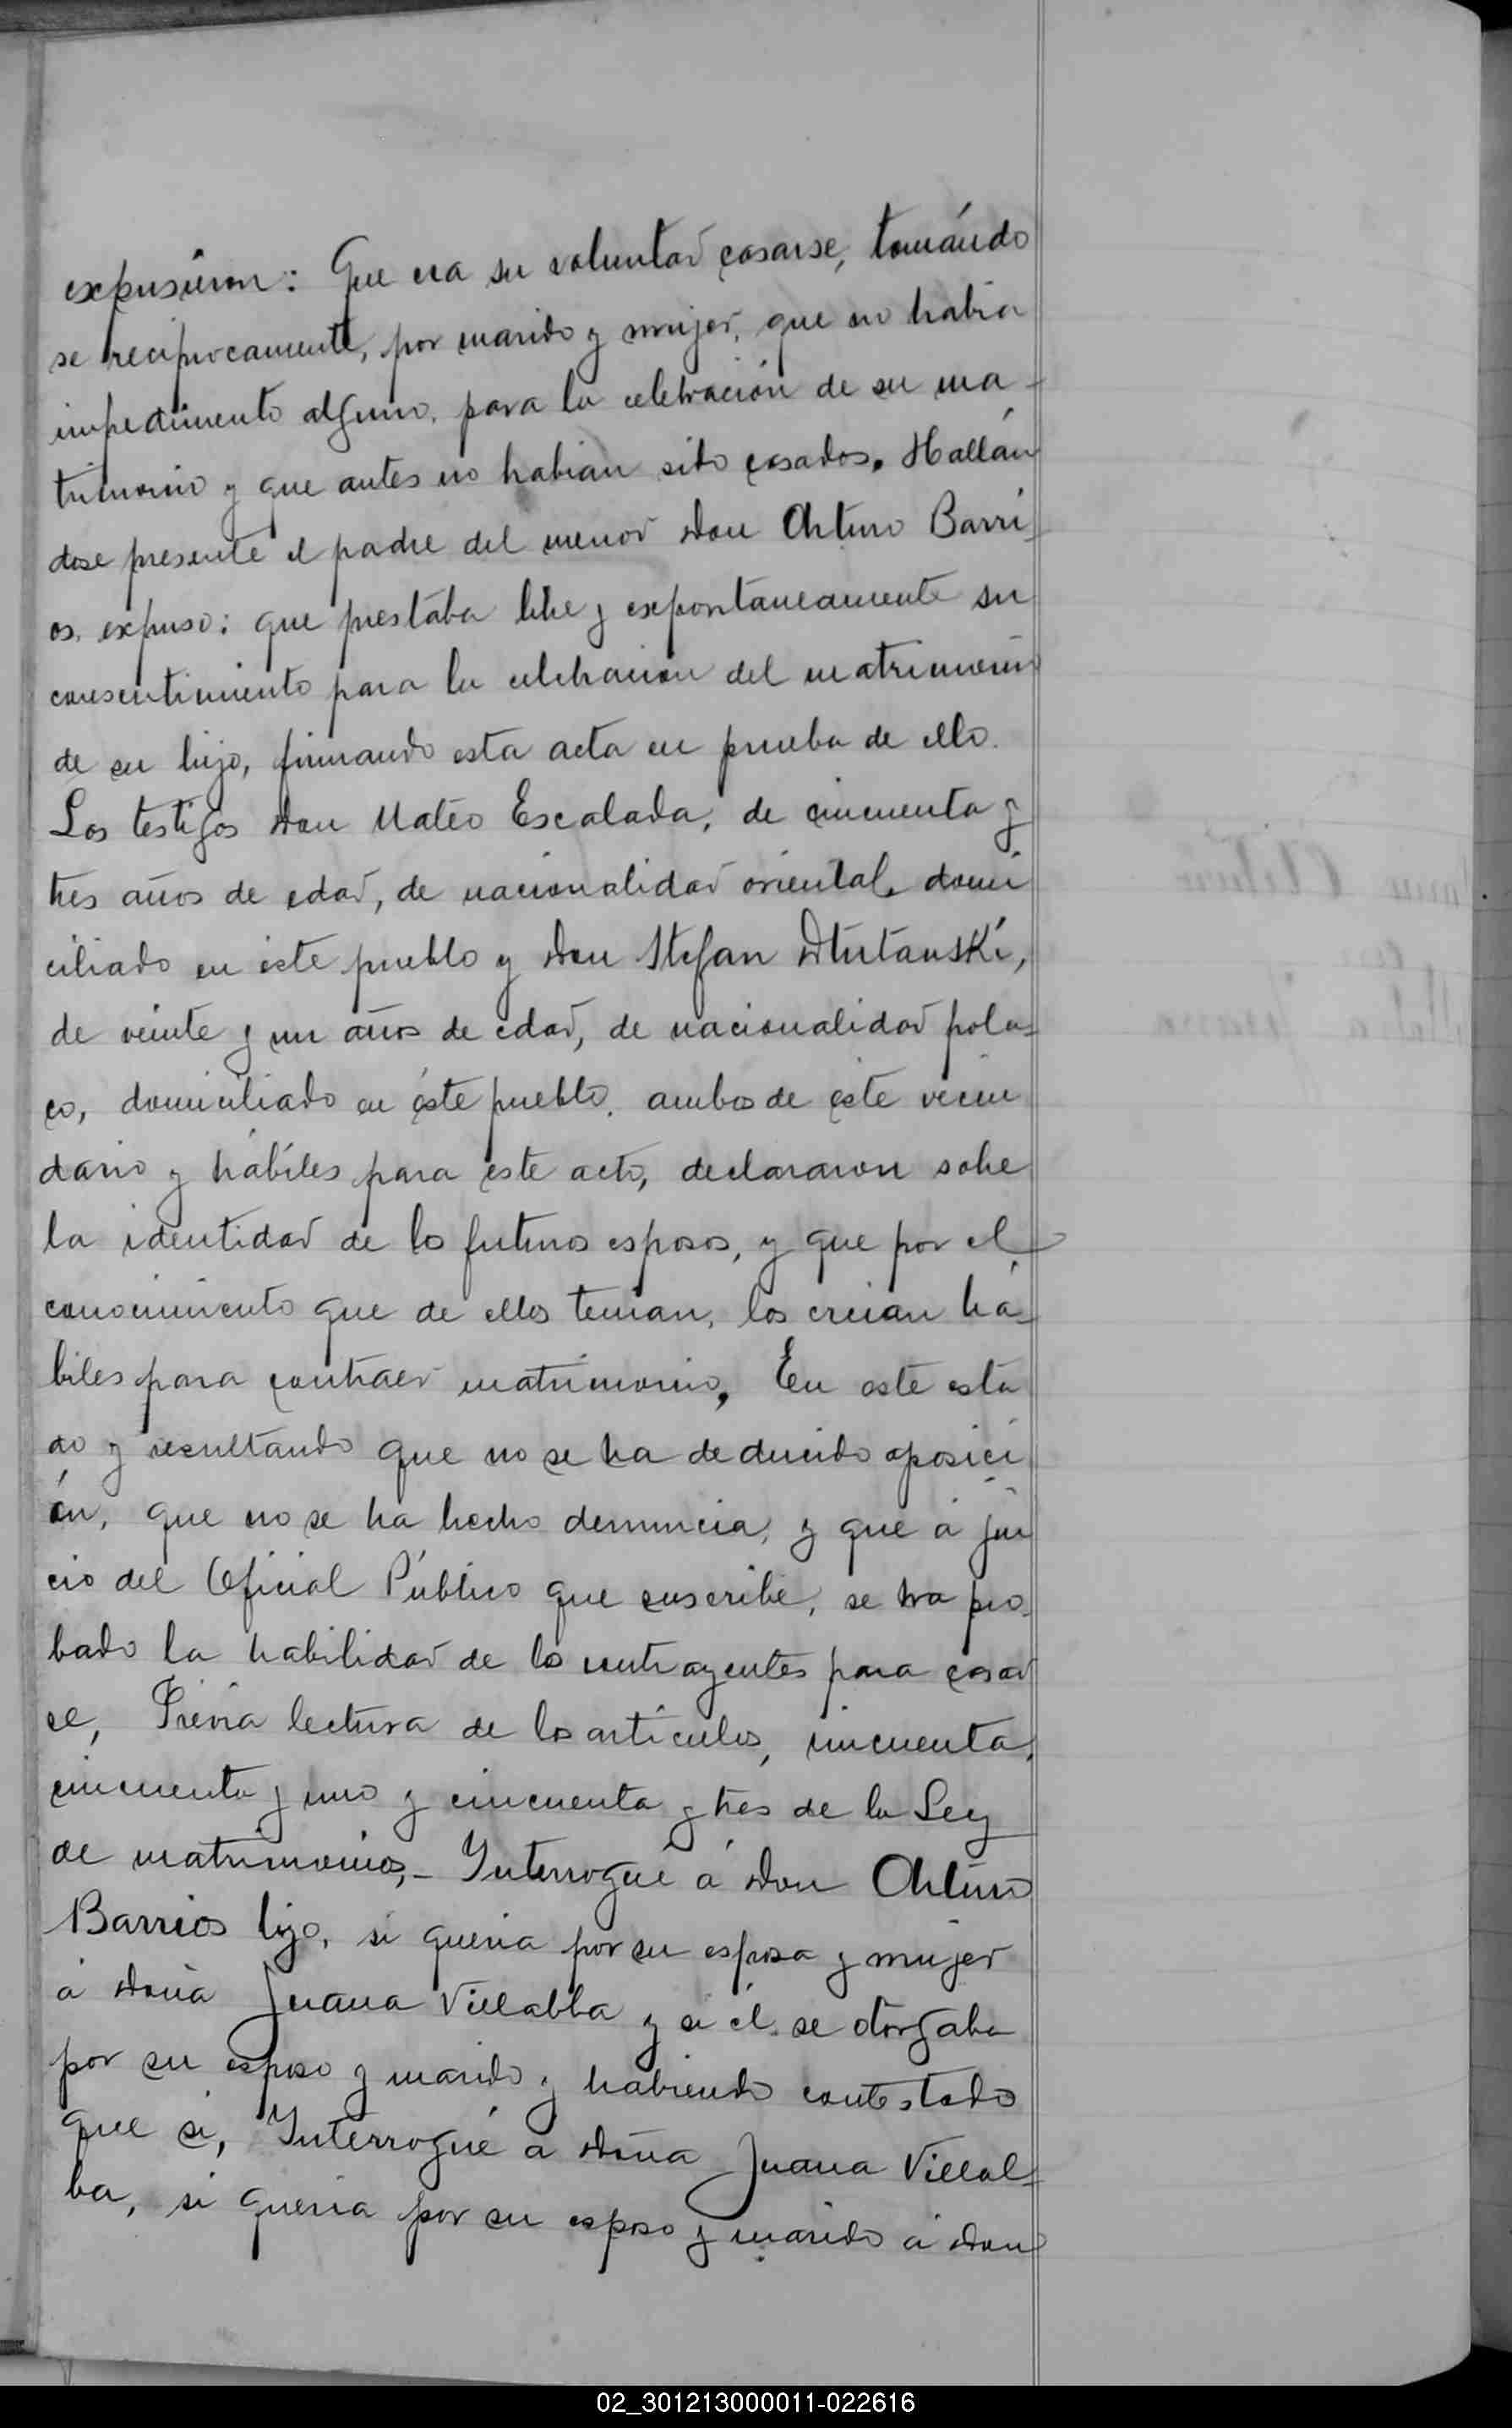 expusieron: Que era su voluntad casarse, tomándo
se reciprocamente, por marido y mujer, que no habia
impedimento alguno, para la celebración de su ma-
trimonio y que antes no habian sido casados. Hallán
dose presente el padre del menor Don Arturo Barri-
os, expuso: que prestaba libre y expontaneamente su
consentimiento para la celebracion del matrimonio
de su hijo, firmando esta acta en prueba de ello.
Los testigos Don Mateo Escalada, de cincuenta y
tres años de edad, de nacionalidad oriental, domi
ciliado en este pueblo y Don Stefan
de veinte y un años de edad, de nacionalidad pola-
co, domiciliado en éste pueblo, ambos de este vecin
dario y hábiles para este acto, declararon sobre
la identidad de los futuros esposos, y que por el
conocimiento que de ellos tenian, los creian há-
biles para contraer matrimonio. En este esta
do y resultando que no se ha deducido oposici
ón, que no se ha hecho denuncia, y que á jui
cio del Oficial Público que suscribe, se ha pro-
bado la habilidad de los contrayentes para casar
se, Prévia lectura de los artículos, cincuenta,
cincuenta y uno y cincuenta y tres de la Ley
de matrimonios,- Interrogué á Don Arturo
Barrios hijo, si queria por su esposa y mujer
á Doña Juana Villalba y si él se otorgaba
por su esposo y marido y habiendo contestado
que si, Interrogué a Doña Juana Villal-
ba, si queria por su esposo y marido á Don
02_301213000011-022616